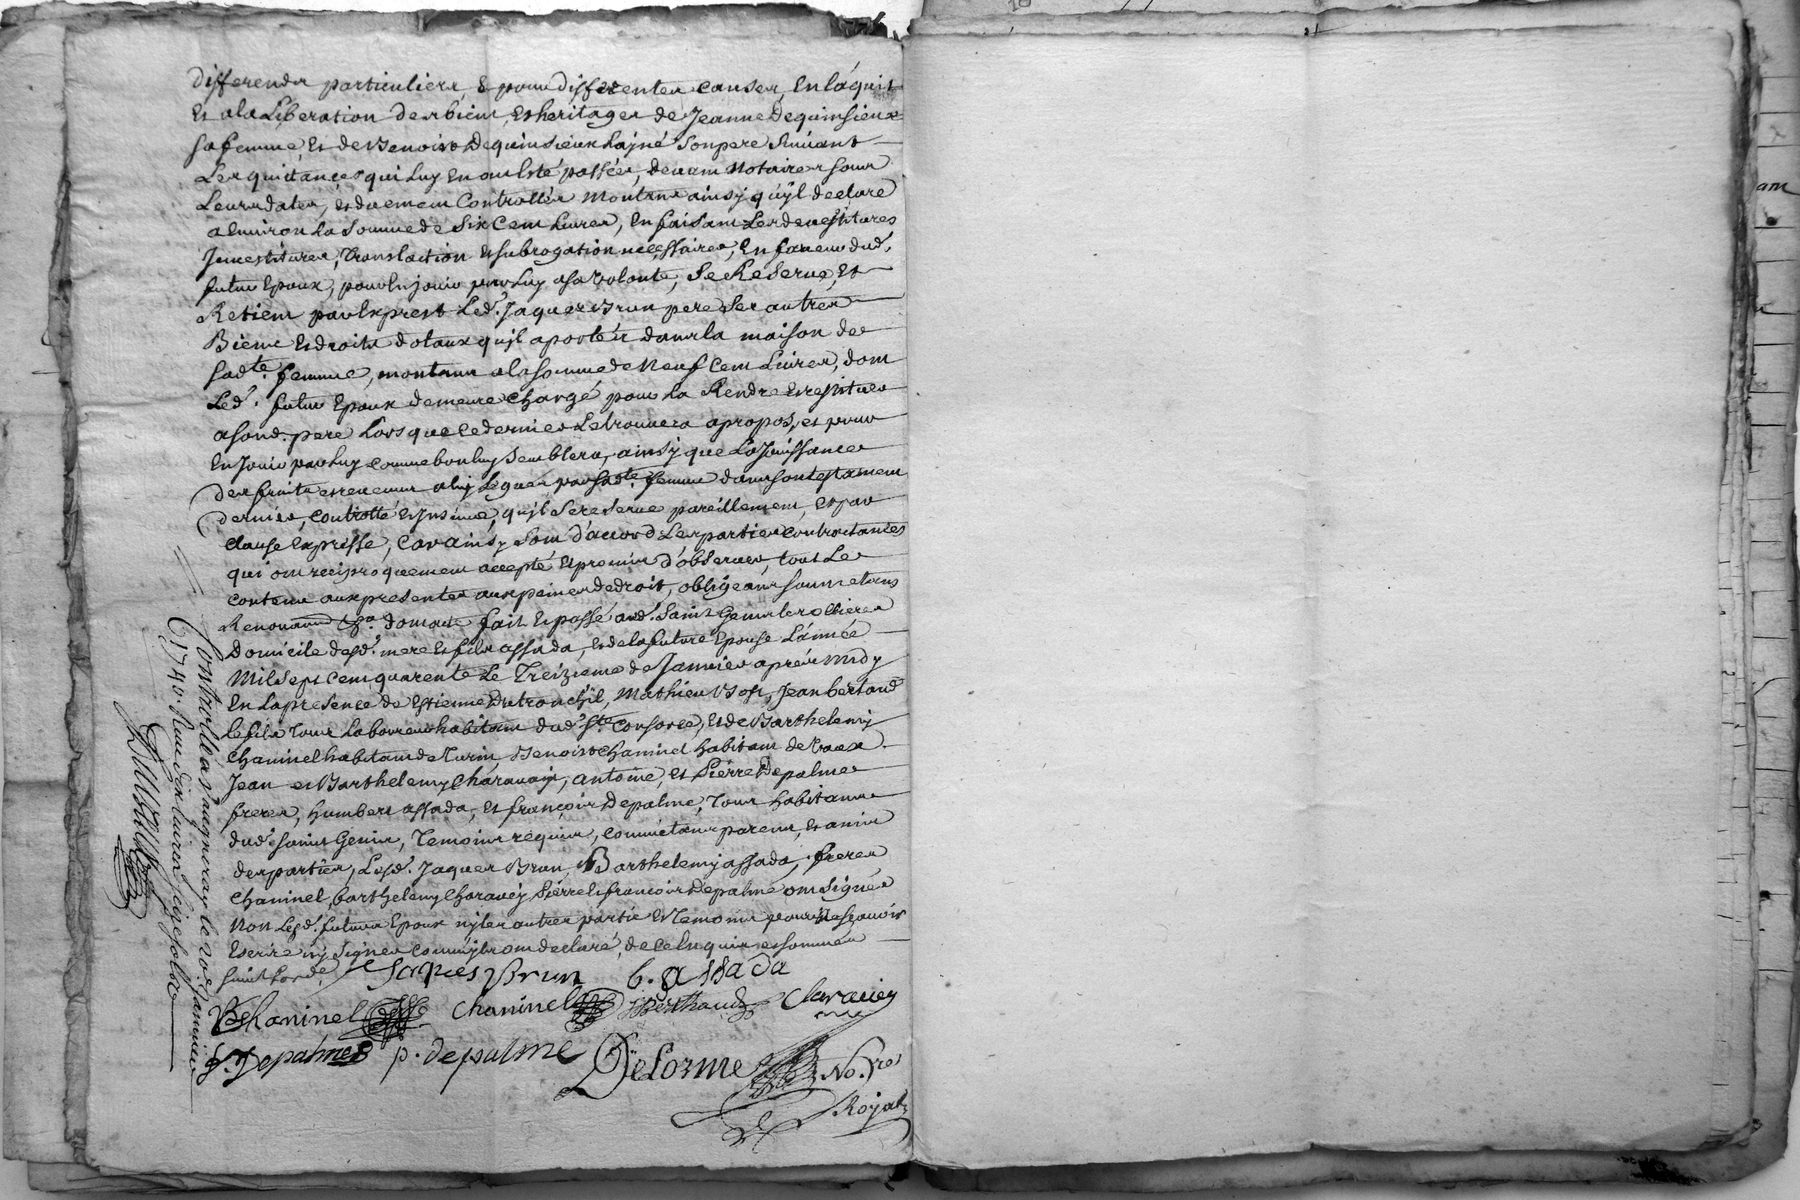 differends particuliers, et pour differentes causes, en l'aquit
et a la Liberation des biens, et heritages de Jeanne Dequinsieux
sa femme, et de Benoist Dequinsieux L'ajné son pere suivant
Les quictances qui luy en ont esté passées, devant Notaires sous
Leurs dates, et duement Controllés montant ainsy qu'yl declare
a Environ La somme de six Cent Livres, En faisant Les devestitures
Jnvestitures, translaction et subrogation necessaires, En faveur dud.
futur Epoux, pour en jouir par Luy a sa volonté, se Reserve, Et
Retient par Exprest Led. Jaques Brun pere ses autrés
Biens et droits dotaux qu'jl a portéz dans la maison de
sad.te femme, montant a la somme de Neuf Cent Livres, dont
Led. futur Epoux demeure Chargé pour La Rendre et restituer
a sond. pere Lors que ce dernier Le trouvera apropos, et pour
En Jouir par Luy comme bon luy semblera, ainsy que La Jouissance
des fruits et revenus a luy Legués par sad.te femme dans son testament
dernier, controllé et Jnsinué, qu'jl se reserve pareillement, et par
clause Expresse, Car ainsy sont d'accord Les parties contractantes
qui ont reciproquement accepté et promis d'observer, tout Le
contenu aux presentes aux peines de droit, obligeant soumetans
Renonçant &a. dont acte fait et passé aud. Saint Genis
Domicile desd. mere et fils assada, et de la future Epouse L'année
Mil sept Cent quarente Le Treizieme de Janvier aprés midy
En La presence de Estienne Dutronchil, Mathieu Bost, Jean bertaud
Le fils Tous Laboureurs habitans dud. S.te Consorce, et de Barthelemy
Chaninel habitant de Turin, Benoist Chaninel habitant de Vaux
Jean et Barthelemy Charavay, antoine, et Piérre Depalmes
freres, humbert assada, et françois Depalme, Tous habitans
dud. saint Genis, Temoins réquis, comme étans parens, et amis
des partiés, Lesd. Jaques Brun, Barthelemy assada, freres
Chaninel, barthelemy Charavéy Piérre et françois Depalme ont signés
Non Lesd. futurs Epoux ny les autres partie et Temoins pour ne sçavoir
Escrire ny signer comm'jls ont declaré, de ce Enquis et sommés
suivt Lord.e
Jaques Brun b. assada
B Chaninel Chaninel JBerthaud Charavey
f. Depalmes p. depalme Delorme No.re
Royal
Controllé a Vaugneray le 20e Janvier
1740. Reçu dix